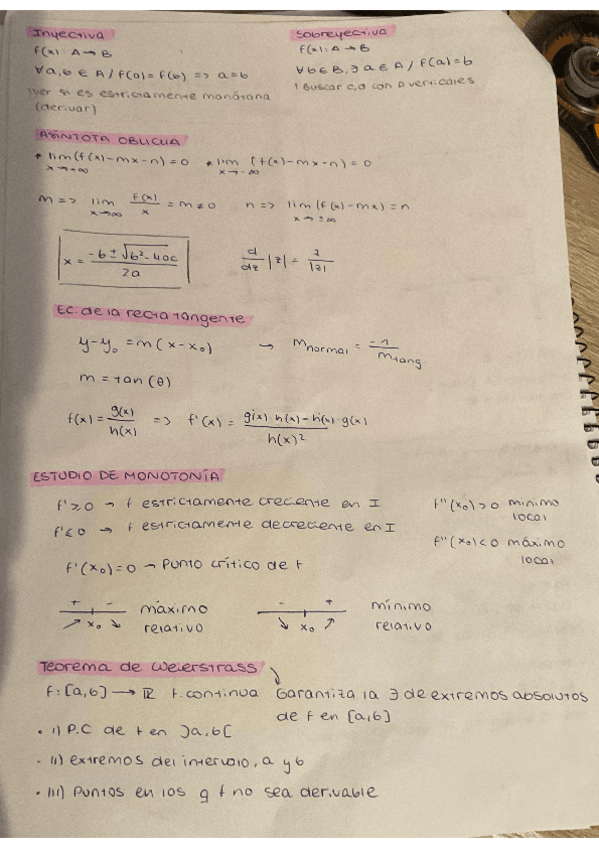 Inyectiva
f(x): A → B
∀a,b ∈ A / f(a) = f(b) => a = b
! ver si es estrictamente monótona
(derivar)
Sobreyectiva
f(x): A → B
∀b ∈ B, ∃ a ∈ A / f(a) = b
! Buscar c,d con A verticales
ASÍNTOTA OBLICUA
• lim x→+∞ (f(x) - mx - n) = 0 • lim x→-∞ (f(x) - mx - n) = 0
m => lim x→∞ f(x)/x = m ≠ 0 n => lim x→±∞ (f(x) - mx) = n
x = (-b ± √(b² - 4ac))/2a d/dz |z| = z/|z|
Ec. de la recta tangente
y - y₀ = m(x - x₀) → m normal = -1/m tang
m = tan(θ)
f(x) = g(x)/h(x) => f'(x) = (g'(x)·h(x) - h'(x)·g(x))/h(x)²
ESTUDIO DE MONOTONÍA
f' ≥ 0 → f estrictamente creciente en I
f' ≤ 0 → f estrictamente decreciente en I
f'(x₀) = 0 → Punto crítico de f
f''(x₀) > 0 mínimo
local
f''(x₀) < 0 máximo
local
+ - máximo
↗ x₀ ↘ relativo
- + mínimo
↘ x₀ ↗ relativo
Teorema de Weierstrass
f: [a,b] → ℝ f. continua Garantiza la ∃ de extremos absolutos
de f en [a,b]
• I) P.C de f en ]a,b[
• II) extremos del intervalo, a y b
• III) Puntos en los q f no sea derivable